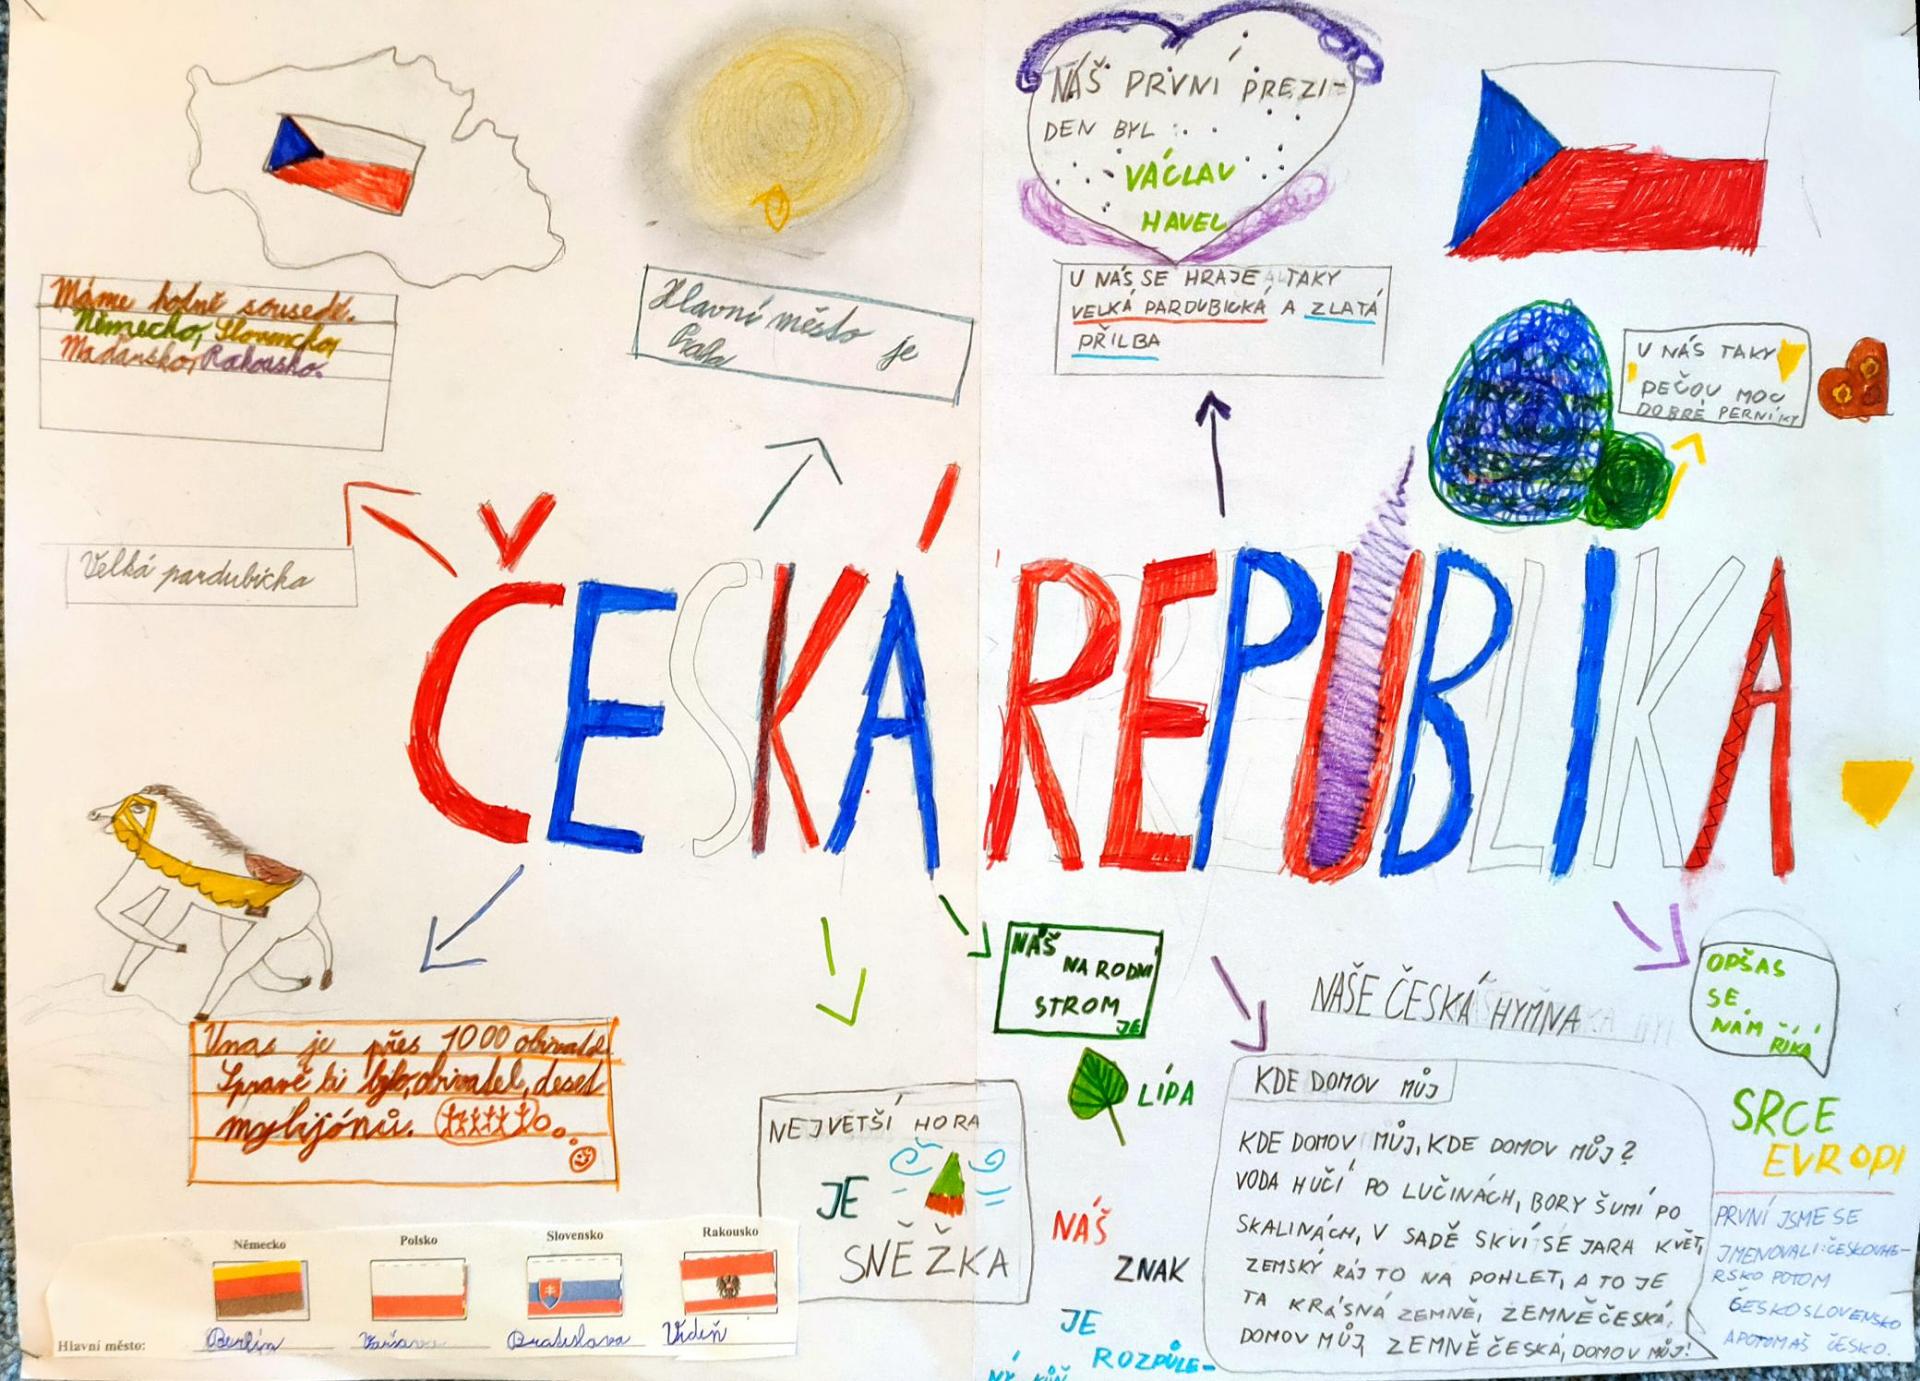 NÁŠ PRVNÍ PREZI-
DEN BYL :
VÁCLAV
HAVEL
Máme hodně sousedě.
Německo, Slovencko,
Maďarsko, Rakousko.
Hlavní město je
Praha
U NÁS SE HRAJE TAKY
VELKÁ PARDUBICKÁ A ZLATÁ
PŘILBA
U NÁS TAKY
PEČOU MOC
DOBRÉ PERNÍKY
Velká pardubicka
ČESKÁ REPUBLIKA
Unas je přes 1000 obivatel.
Spravě bi bylo, obivatel, deset
mylijónů.
NÁŠ
NARODNÍ
STROM
JE
LÍPA
NEJVETŠÍ HORA
JE
SNĚŽKA
NAŠE ČESKÁ HYMNA
KDE DOMOV MŮJ
KDE DOMOV MŮJ, KDE DOMOV MŮJ?
VODA HUČÍ PO LUČINÁCH, BORY ŠUMÍ PO
SKALINÁCH, V SADĚ SKVÍ SE JARA KVĚT,
ZEMSKÝ RÁJ TO NA POHLET, A TO JE
TA KRÁSNÁ ZEMNĚ, ZEMNĚ ČESKÁ,
DOMOV MŮJ, ZEMNĚ ČESKÁ, DOMOV MŮJ!
OPŠAS
SE
NÁM
ŘÍKÁ
SRCE
EVROPI
PRVNÍ JSME SE
JMENOVALI: ČESKOUHE-
RSKO POTOM
ČESKOSLOVENSKO
A POTOM AŠ ČESKO.
NÁŠ
ZNAK
JE
ROZPŮLE-
NÝ KŮŇ
Německo Polsko Slovensko Rakousko
Hlavní město: Berlín Varšava Bratislava Vídeň